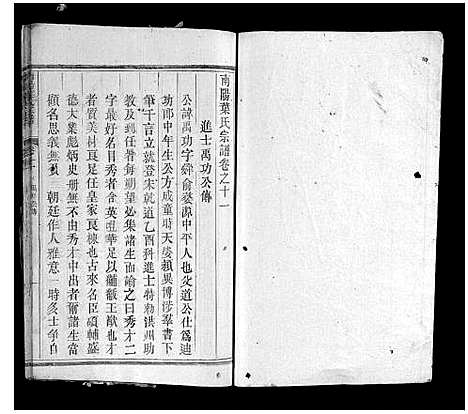 南陽葉氏宗譜卷之十一
進士禹功公傳
公諱禹功字舜俞婺源中平人也父道公仕爲迪
功郎中年生公方成童時天姿穎異博涉羣書下
筆千言立就登宋乾道乙酉科進士特勅洪州助
教及訓任每朔望必集諸生而諭之曰秀才二
字最好名目秀者含英咀華足以黼黻王猷也才
者質美材良足任皇家良棟也古來名臣碩輔盛
德大業彪炳史册無不由秀才中出者爾諸生當
顧名思義無負　朝廷作人雅意一時多士爭自